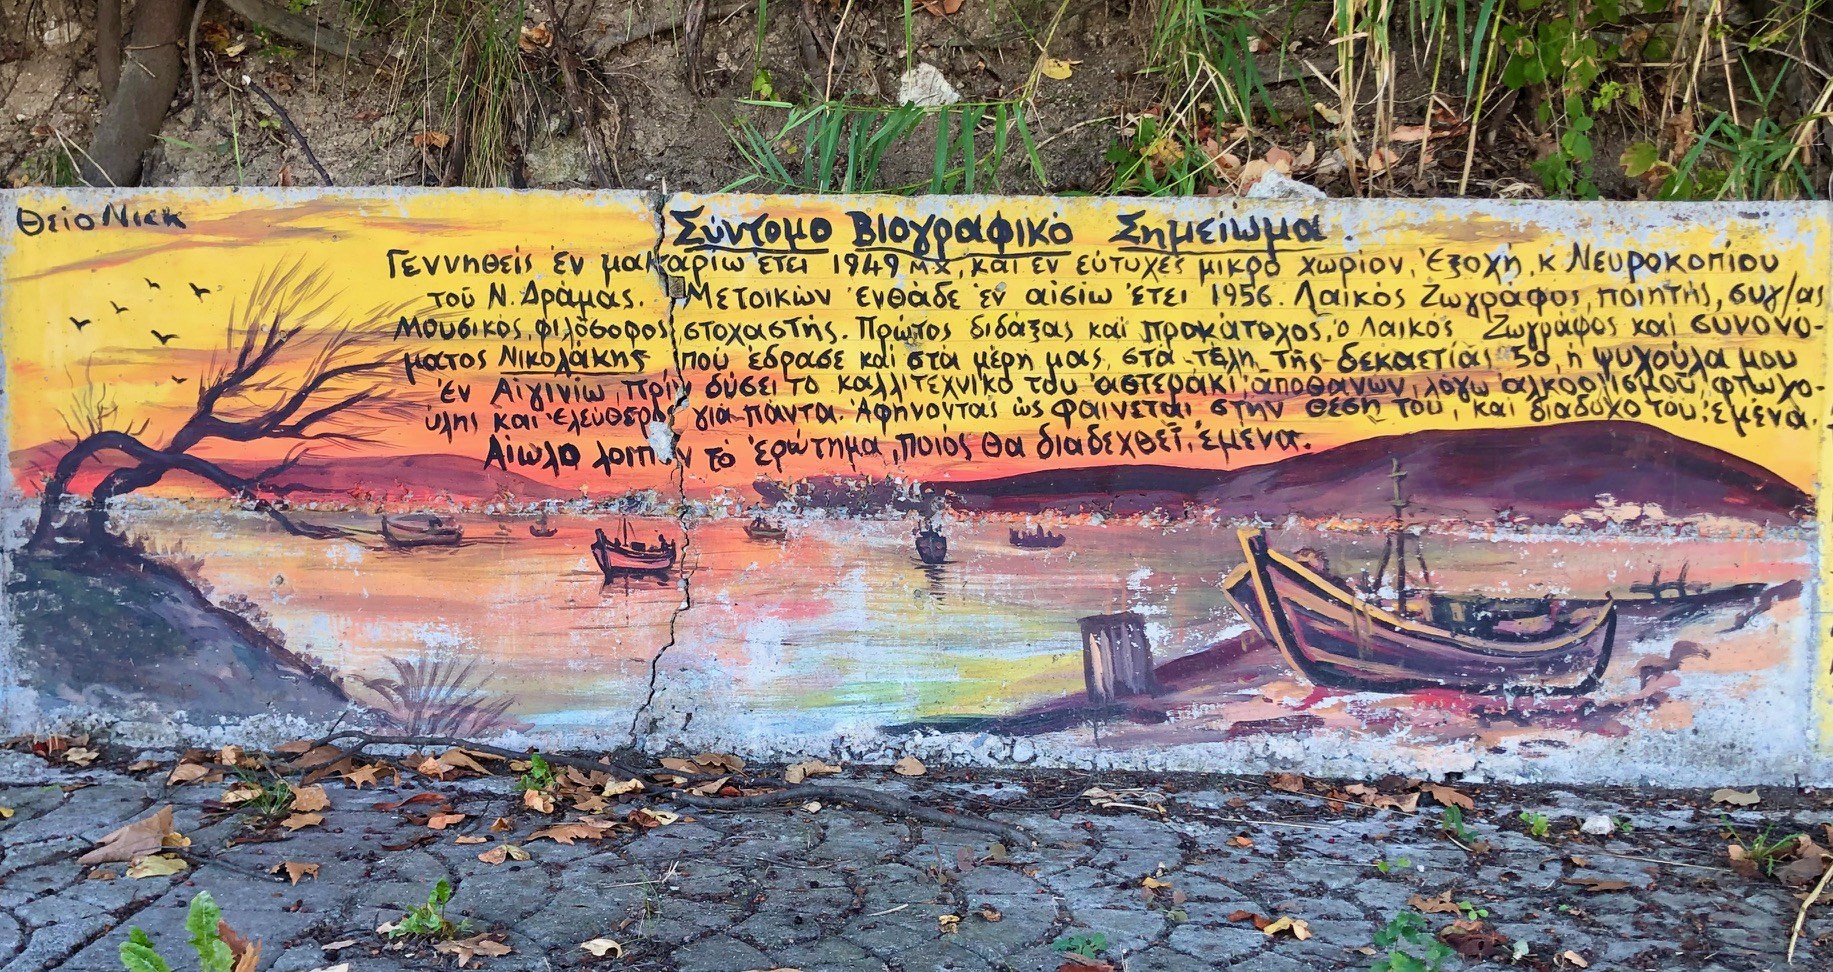 Θείο Νικκ
Σύντομο Βιογραφικό Σημείωμα.
Γεννηθείς ἐν μακαρίω ἔτει 1949 μ.χ, και εν εύτυχές μικρό χωρίον, Ἐξοχή, κ Νευροκοπίου
τοῦ Ν. Δράμας. Μετοικών ἐνθάδε ἐν αἰσίω ἔτει 1956. Λαικός Ζωγράφος, ποιητής, συγ/ας
Μουσικός, φιλόσοφος στοχαστής. Πρώτος διδάξας καί προκάτοχος, ὁ Λαικός Ζωγράφος και συνονό-
ματος Νικολάκης πού ἔδρασε καί στά μέρη μας, στά τέλη τῆς δεκαετίας 50, ἡ ψυχούλα μου
ἐν Αἰγινίω, πρίν δύσει το καλλιτεχνικό του ἀστεράκι, ἀποθανων, λόγω ἀλκοολισμοῦ, φτωχο-
ύλης και ἐλεύθερος γιά πάντα. Ἀφήνοντας ὡς φαίνεται στην θέση του, και διαδοχο του: ἐμένα.
Αἰωλο λοιπόν τό ἐρώτημα, ποιός θα διαδεχθεῖ, ἐμένα.